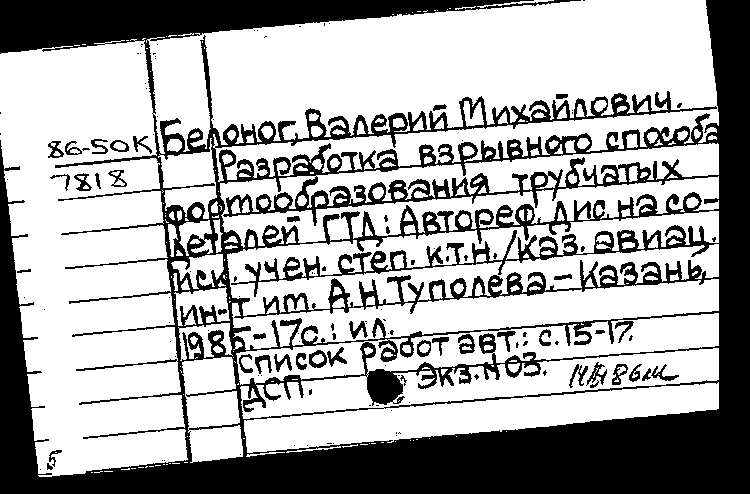 86-50К
7818
Белоног, Валерий Михайлович.
Разработка взрывного способа
формообразования трубчатых
деталей ГТД: Автореф. дис. на со-
иск. учен. степ. к.т.н./Каз. авиац.
ин-т им. А.Н.Туполева.-Казань,
1985.-17с.: ил.
Список работ авт.: с.15-17.
ДСП. Экз.№03.
5